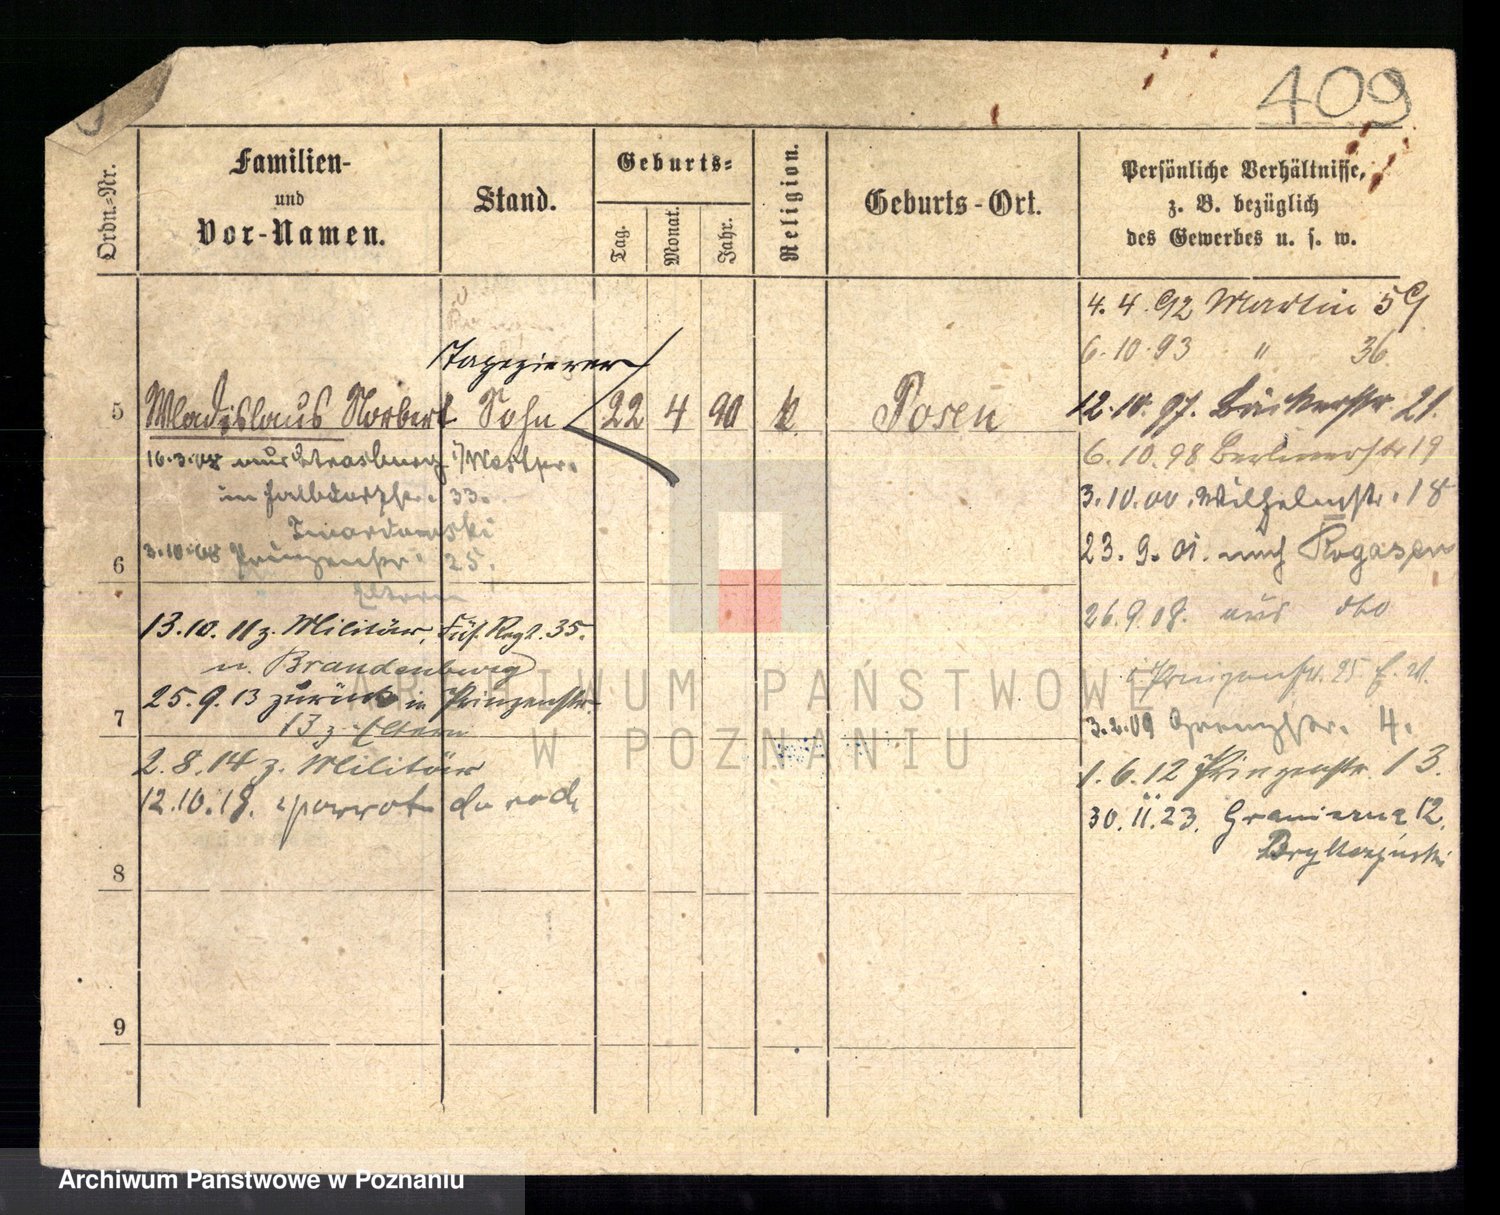 409
Ordn.-Nr.
Familien-
und
Vor-Namen.
Stand.
Geburts-
Tag.
Monat.
Jahr.
Religion.
Geburts-Ort.
Persönliche Verhältnisse,
z. B. bezüglich
des Gewerbes u. s. w.
Tapezierer
5 Wladislaus Norbert Sohn 22 4 90 k Posen
16.3.08 aus Strasburg i/Westpr.
33.
Twardowski
6
3.10.08 Prinzenstr. 25.
Eltern
13.10.11 z. Militär, Füs. Regt. 35.
n. Brandenburg
25.9.13 zurück in Prinzenstr.
7
13 z. Eltern
2.8.14 z. Militär
12.10.18.
8
9
4.4.92 Martin 59
6.10.93 " 36
12.10.97. Bäckerstr 21.
6.10.98 Berlinerstr 19
3.10.00. Wilhelmstr. 18
23.9.01. nach Rogasen
26.9.08. aus dto
i/Prinzenstr. 25 E. W.
3.2.09 Grenzstr. 4.
1.6.12 Prinzenstr. 13.
30.11.23. Graniczna 12.
ARCHIWUM PAŃSTWOWE
W POZNANIU
Archiwum Państwowe w Poznaniu